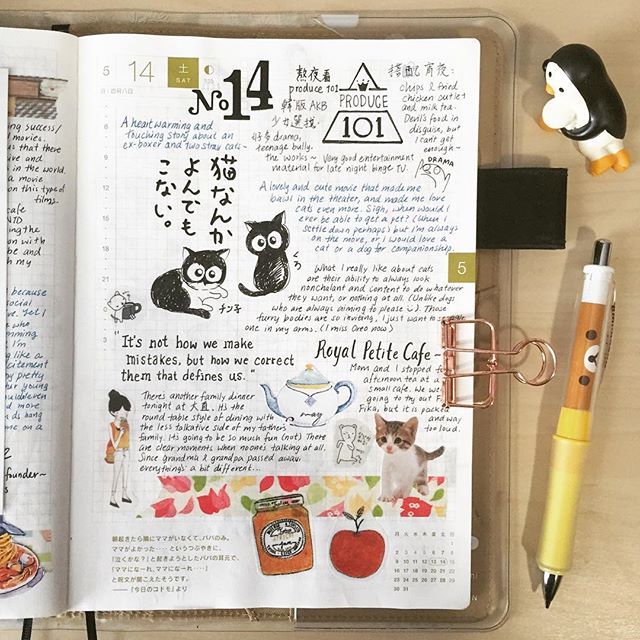 ing success/
movies
us that there
ive and
in the world.
a movie
on this type of
films.
cafe
ing the
on with
be and
h my
because
social
Yet I
who
mming
I'm
ng like a
excitement
by pretty
r young
and more
song
me on a
2
founder~
5 14 土 SAT
No.14
A heartwarming and
touching story about an
ex-boxer and two stray cats~
猫なんか
よんでも
こない。
チン子
熱夜看
produce 101
韓版AKB
少女選拔
好多drama,
teenage bully.
the works~ Very good entertainment
material for late night binge TV.
PRODUCE
101
搭配宵夜:
chips & fried
chicken cutlet
and milk tea.
Devil's food in
disguise, but
I can't get
enough~
DRAMA
A lovely and cute movie that made me
bawl in the theater, and made me love
cats even more. Sigh, when would I
ever be able to get a pet? (When I
settle down perhaps) but I'm always
on the move, or I would love a
cat or a dog for companionship.
5
What I really like about cats
are their ability to always look
nonchalant and content to do whatever
they want, or nothing at all. (Unlike dogs
who are always aiming to please). Those
furry bodies are so inviting, I just want to
one in my arms. (I miss Oreo now)
"It's not how we make
mistakes, but how we correct
them that defines us."
Royal Petite Cafe~
Mom and I stopped for
afternoon tea at a
small cafe. We we
going to try out F
Fika, but it is packed
and way
too loud.
There's another family dinner
tonight at 大直. It's the
round table style of dining with
the less talkative side of my father's
family. It's going to be so much fun (not) There
are clear moments when no one's talking at all.
Since grandma & grandpa passed away,
everything's a bit different...
朝起きたら隣にママがいなくて、パパのみ。
ママがよかった・・・・というつぶやきに、
「泣くかな?」と起きようとしたパパの耳元で、
「ママになーれ、ママになーれ・・・・」
と呪文が聞こえたそうです。
——「今日のコドモ」より
月 火 水 木 金 土 日
1
2 3 4 5 6 7 8
9 10 11 12 13 14 15
16 17 18 19 20 21 22
23 24 25 26 27 28 29
30 31